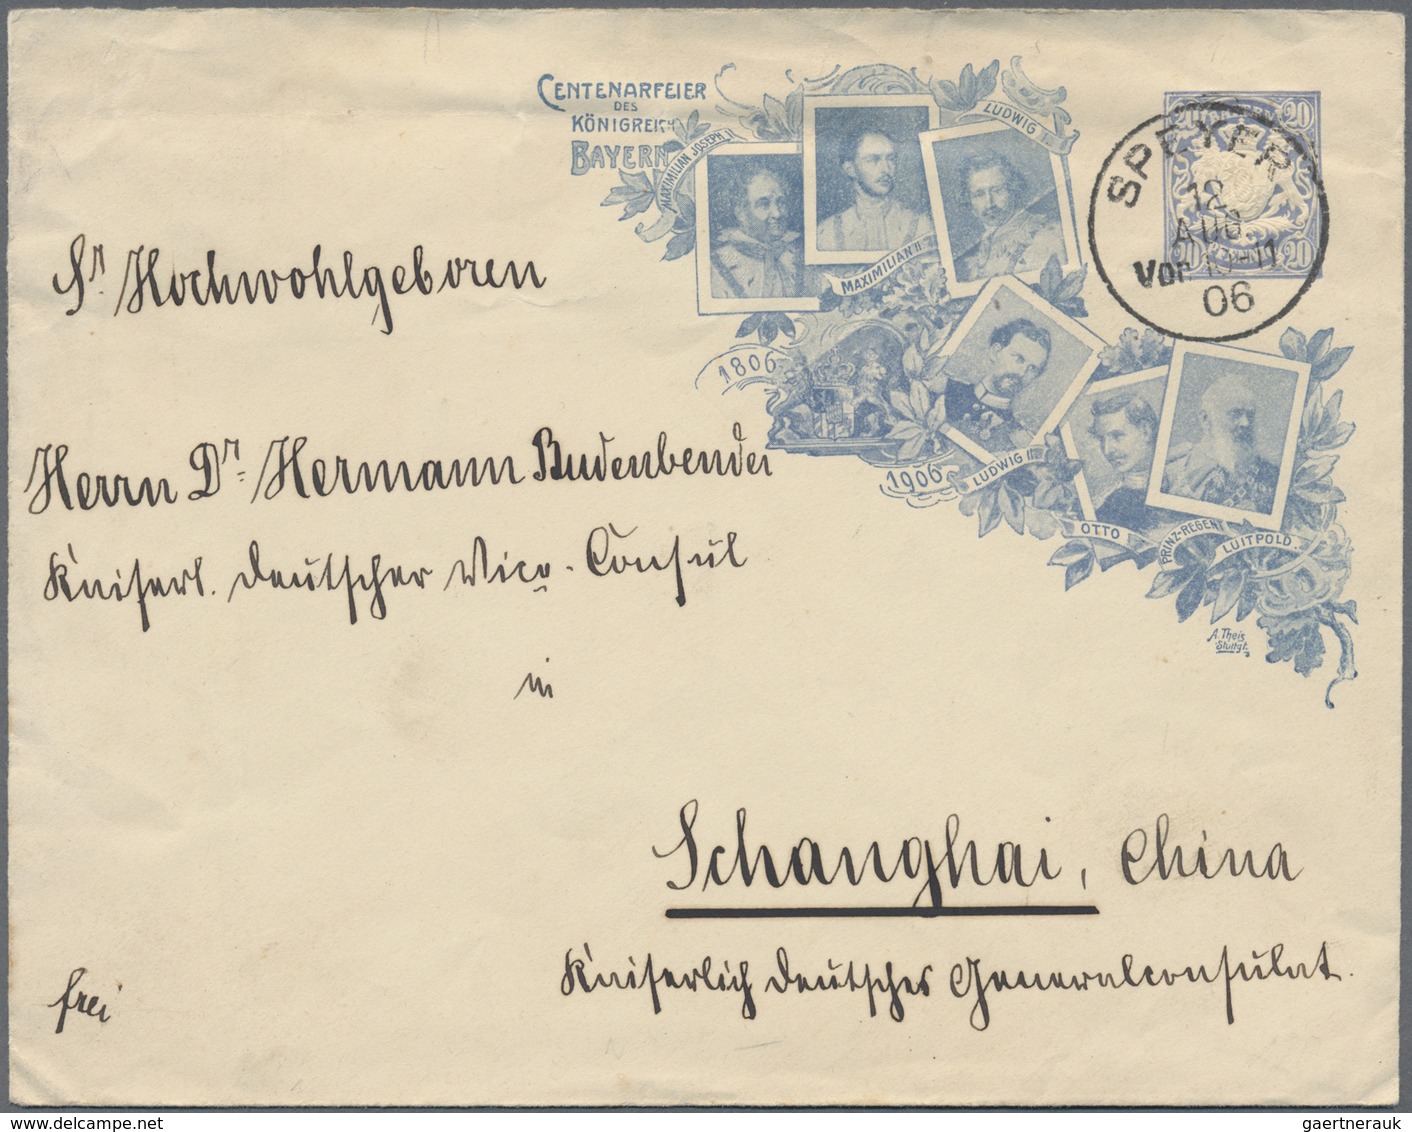 CENTENARFEIER
DES
KÖNIGREICH
BAYERN
MAXIMILIAN JOSEPH I.
MAXIMILIAN II
LUDWIG I.
1806
1906
LUDWIG II
OTTO I
PRINZ-REGENT
LUITPOLD.
A. Theis
Stuttgt.
20 20
20 20
SPEYER
12
AUG
Vor. 10-11
06
Sr. Hochwohlgeboren
Herrn Dr. Hermann Budenbender
Kaiserl. deutscher Vice-Consul
in
Schanghai, China
Kaiserlich deutsches Generalconsulat.
frei
gaertnerauk